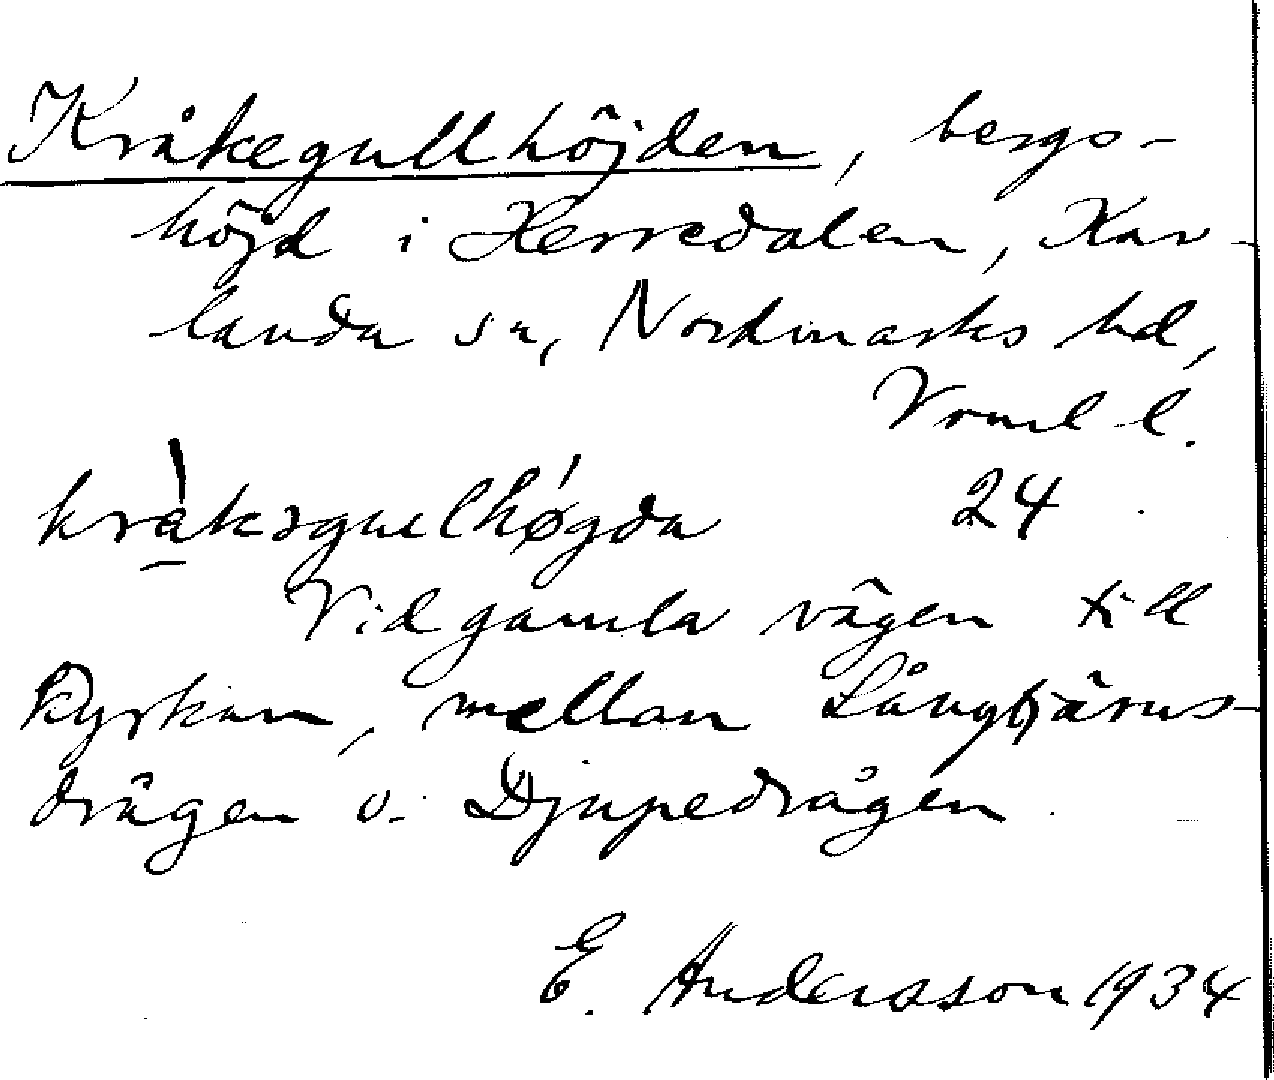 Kråkegullhöjden, bergs-
höjd i Herredalen, Kar-
landa sn, Nordmarks hd,
Vrml l.
kràkəguelhøgda 24
Vid gamla vägen till
kyrkan, mellan Långtjärns-
drågen o. Djupedrågen.
E. Andersson 1934